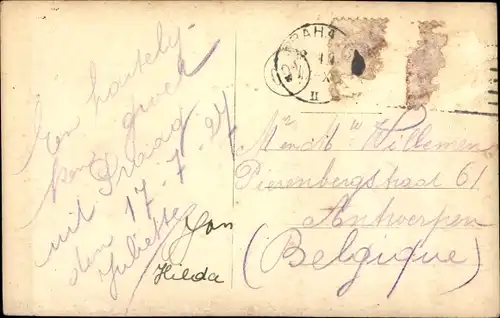 Een hartelij-
ken groet
uit Praag
den 17-7-27
Juliette
Jan
Hilda
PRAHA
II
Willemens
Pierenbergstraat 61
Antwerpen
(Belgique)